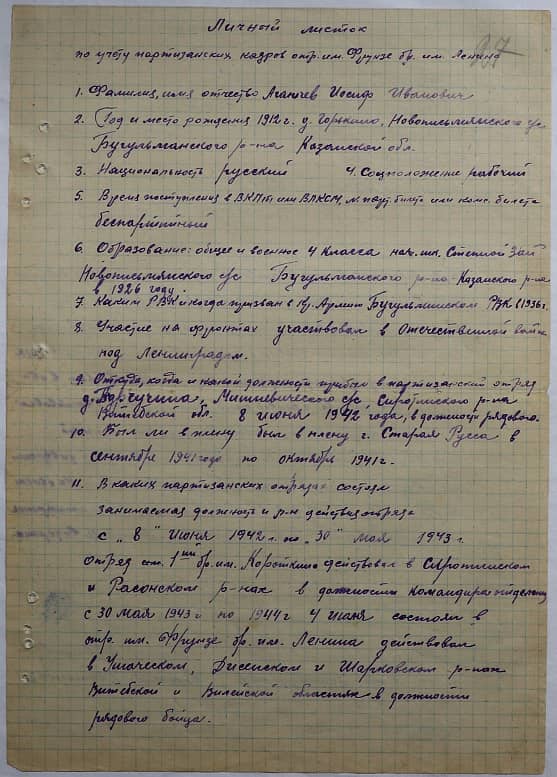 Личный листок
по учёту партизанских кадров отр. им. Фрунзе бр. им. Ленина
37
1. Фамилия, имя отчество Аганчев Иосиф Иванович
2. Год и место рождения 1912 г. д. Горькино, Новописьмянского с/с
Бугульманского р-на Казанской обл.
3. Национальность русский 4. Соцположение рабочий
5. Время поступления в ВКПб или ВЛКСМ, № парт. билета или комс. билета
беспартийный
6. Образование: общее и военное 4 класса нач. шк. Степной Зай
Новописьмянского с/с Бугульманского р-на Казанского р-на
в 1926 году.
7. Каким РВК и когда призван в Кр. Армию Бугульминским РВК в 1936 г.
8. Участие на фронтах участвовал в Отечественной войне
под Ленинградом.
9. Откуда, когда и какой должности прибыл в партизанский отряд
д. Мишневического с/с, Сиротинского р-на
Витебской обл. 8 июня 1942 года, в должности рядового.
10. Был ли в плену был в плену г. Старая Русса в
сентябре 1941 года по октябрь 1941 г.
11. В каких партизанских отрядах состоял
занимаемая должность и р-н действия отряда
с „8" июня 1942 г. по „30" мая 1943 г.
отряд 1ый бр. им. Короткина действовал в Сиротинском
и Расонском р-нах в должности командира отделения
с 30 мая 1943 г по 1944 г 4 июня состоял в
отр. им. Фрунзе бр. им. Ленина действовал
в Ушачском, Дисенском и Шарковском р-нах
Витебской и Вилейской областях в должности
рядового бойца.